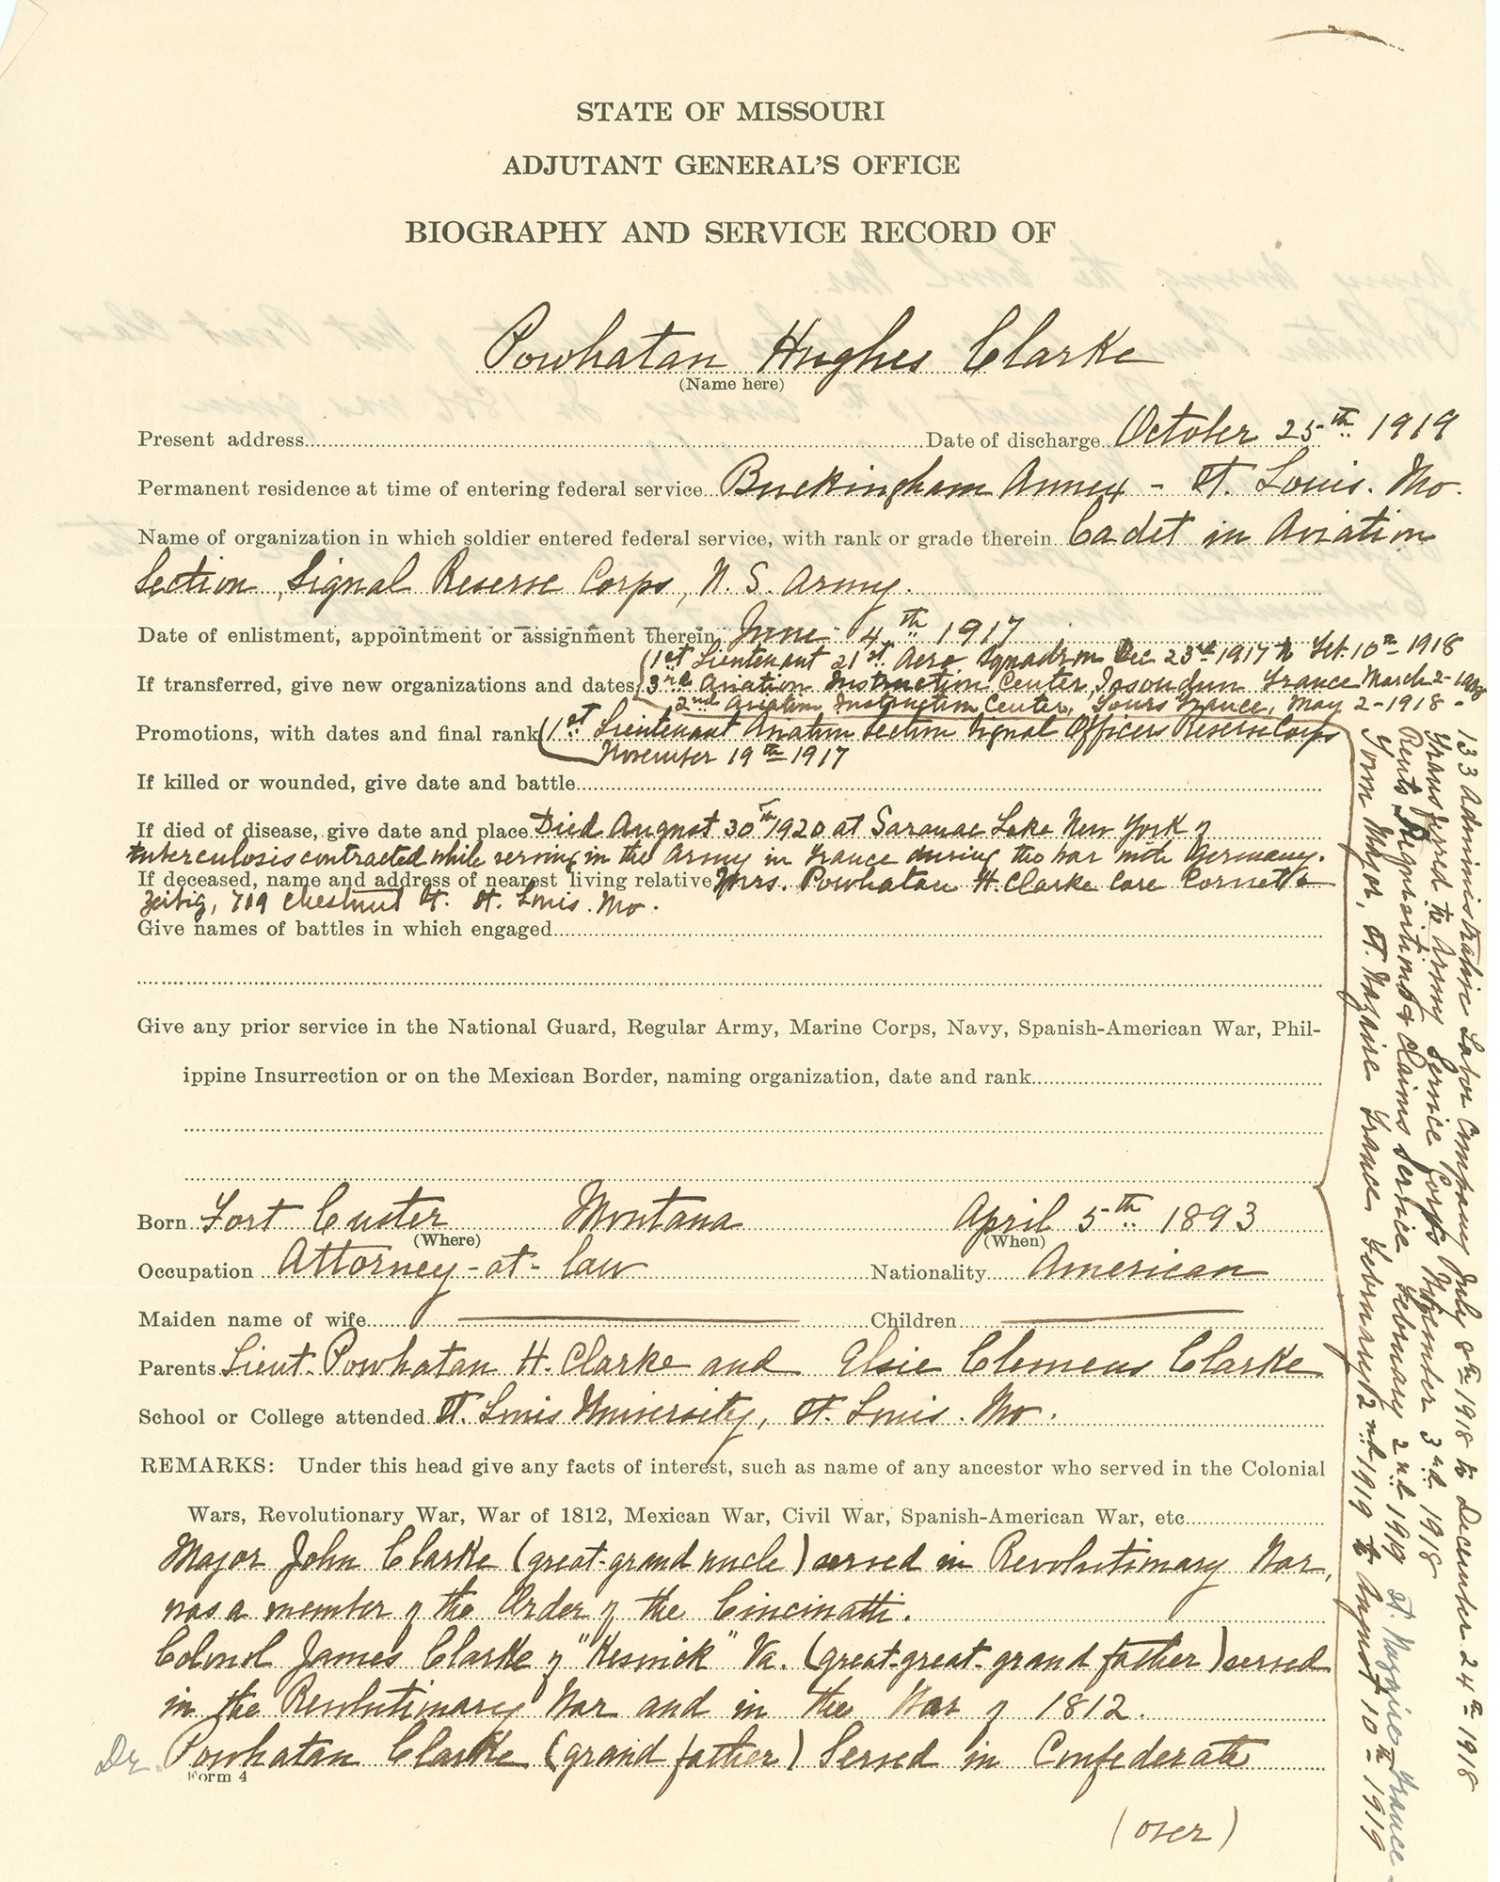 STATE OF MISSOURI
ADJUTANT GENERAL'S OFFICE
BIOGRAPHY AND SERVICE RECORD OF
Powhatan Hughes Clarke
(Name here)
Present address Date of discharge October 25th 1919
Permanent residence at time of entering federal service Buckingham Annex - St. Louis. Mo.
Name of organization in which soldier entered federal service, with rank or grade therein Cadet in Aviation
Section, Signal Reserve Corps, U. S. Army.
Date of enlistment, appointment or assignment therein June 4th 1917
1st Lieutenant 21st Aero Squadron Dec 23rd 1917 to Feb. 10th 1918
If transferred, give new organizations and dates 3rd Aviation Instruction Center, Issoudun France March 2-1918
2nd Aviation Instruction Center, Tours France, May 2-1918-
Promotions, with dates and final rank 1st Lieutenant Aviation Section Signal Officers Reserve Corps
November 19th 1917
If killed or wounded, give date and battle
If died of disease, give date and place Died August 30th 1920 at Saranac Lake New York of
tuberculosis contracted while serving in the Army in France during the war with Germany.
If deceased, name and address of nearest living relative Mrs. Powhatan H. Clarke Care Cornet &
Zeibig, 719 Chestnut St. St. Louis. Mo.
Give names of battles in which engaged
Give any prior service in the National Guard, Regular Army, Marine Corps, Navy, Spanish-American War, Phil-
ippine Insurrection or on the Mexican Border, naming organization, date and rank
Born Fort Custer Montana April 5th 1893
(Where) (When)
Occupation Attorney-at-law Nationality American
Maiden name of wife Children
Parents Lieut. Powhatan H. Clarke and Elsie Clemens Clarke
School or College attended St. Louis University, St. Louis. Mo.
REMARKS: Under this head give any facts of interest, such as name of any ancestor who served in the Colonial
Wars, Revolutionary War, War of 1812, Mexican War, Civil War, Spanish-American War, etc
Major John Clarke (great-grand uncle) served in Revolutionary War,
was a member of the Order of the Cincinatti.
Colonel James Clarke of "Keswick" Va. (great-great-grand father) served
in the Revolutionary War and in the War of 1812.
Dr. Powhatan Clarke (grand father) Served in Confederate
Form 4
(over)
133 Administrative Labor Company July 8th 1918 to December 24th 1918
Transferred to Army Service Corps November 3rd 1918
Rents Requisitions & Claims Service February 2nd 1919 St. Nazaire France-
Town Major, St. Nazaire France February 2nd 1919 to August 10th 1919